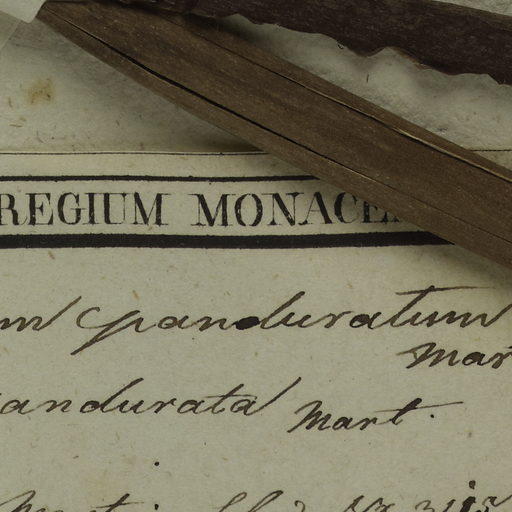 REGIUM MONACE
panduratum
Mar
andurata Mart.
Mart.